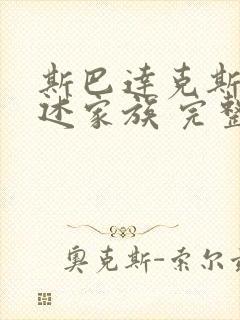 斯巴達克斯
述家族 完整
奧克斯-索尔